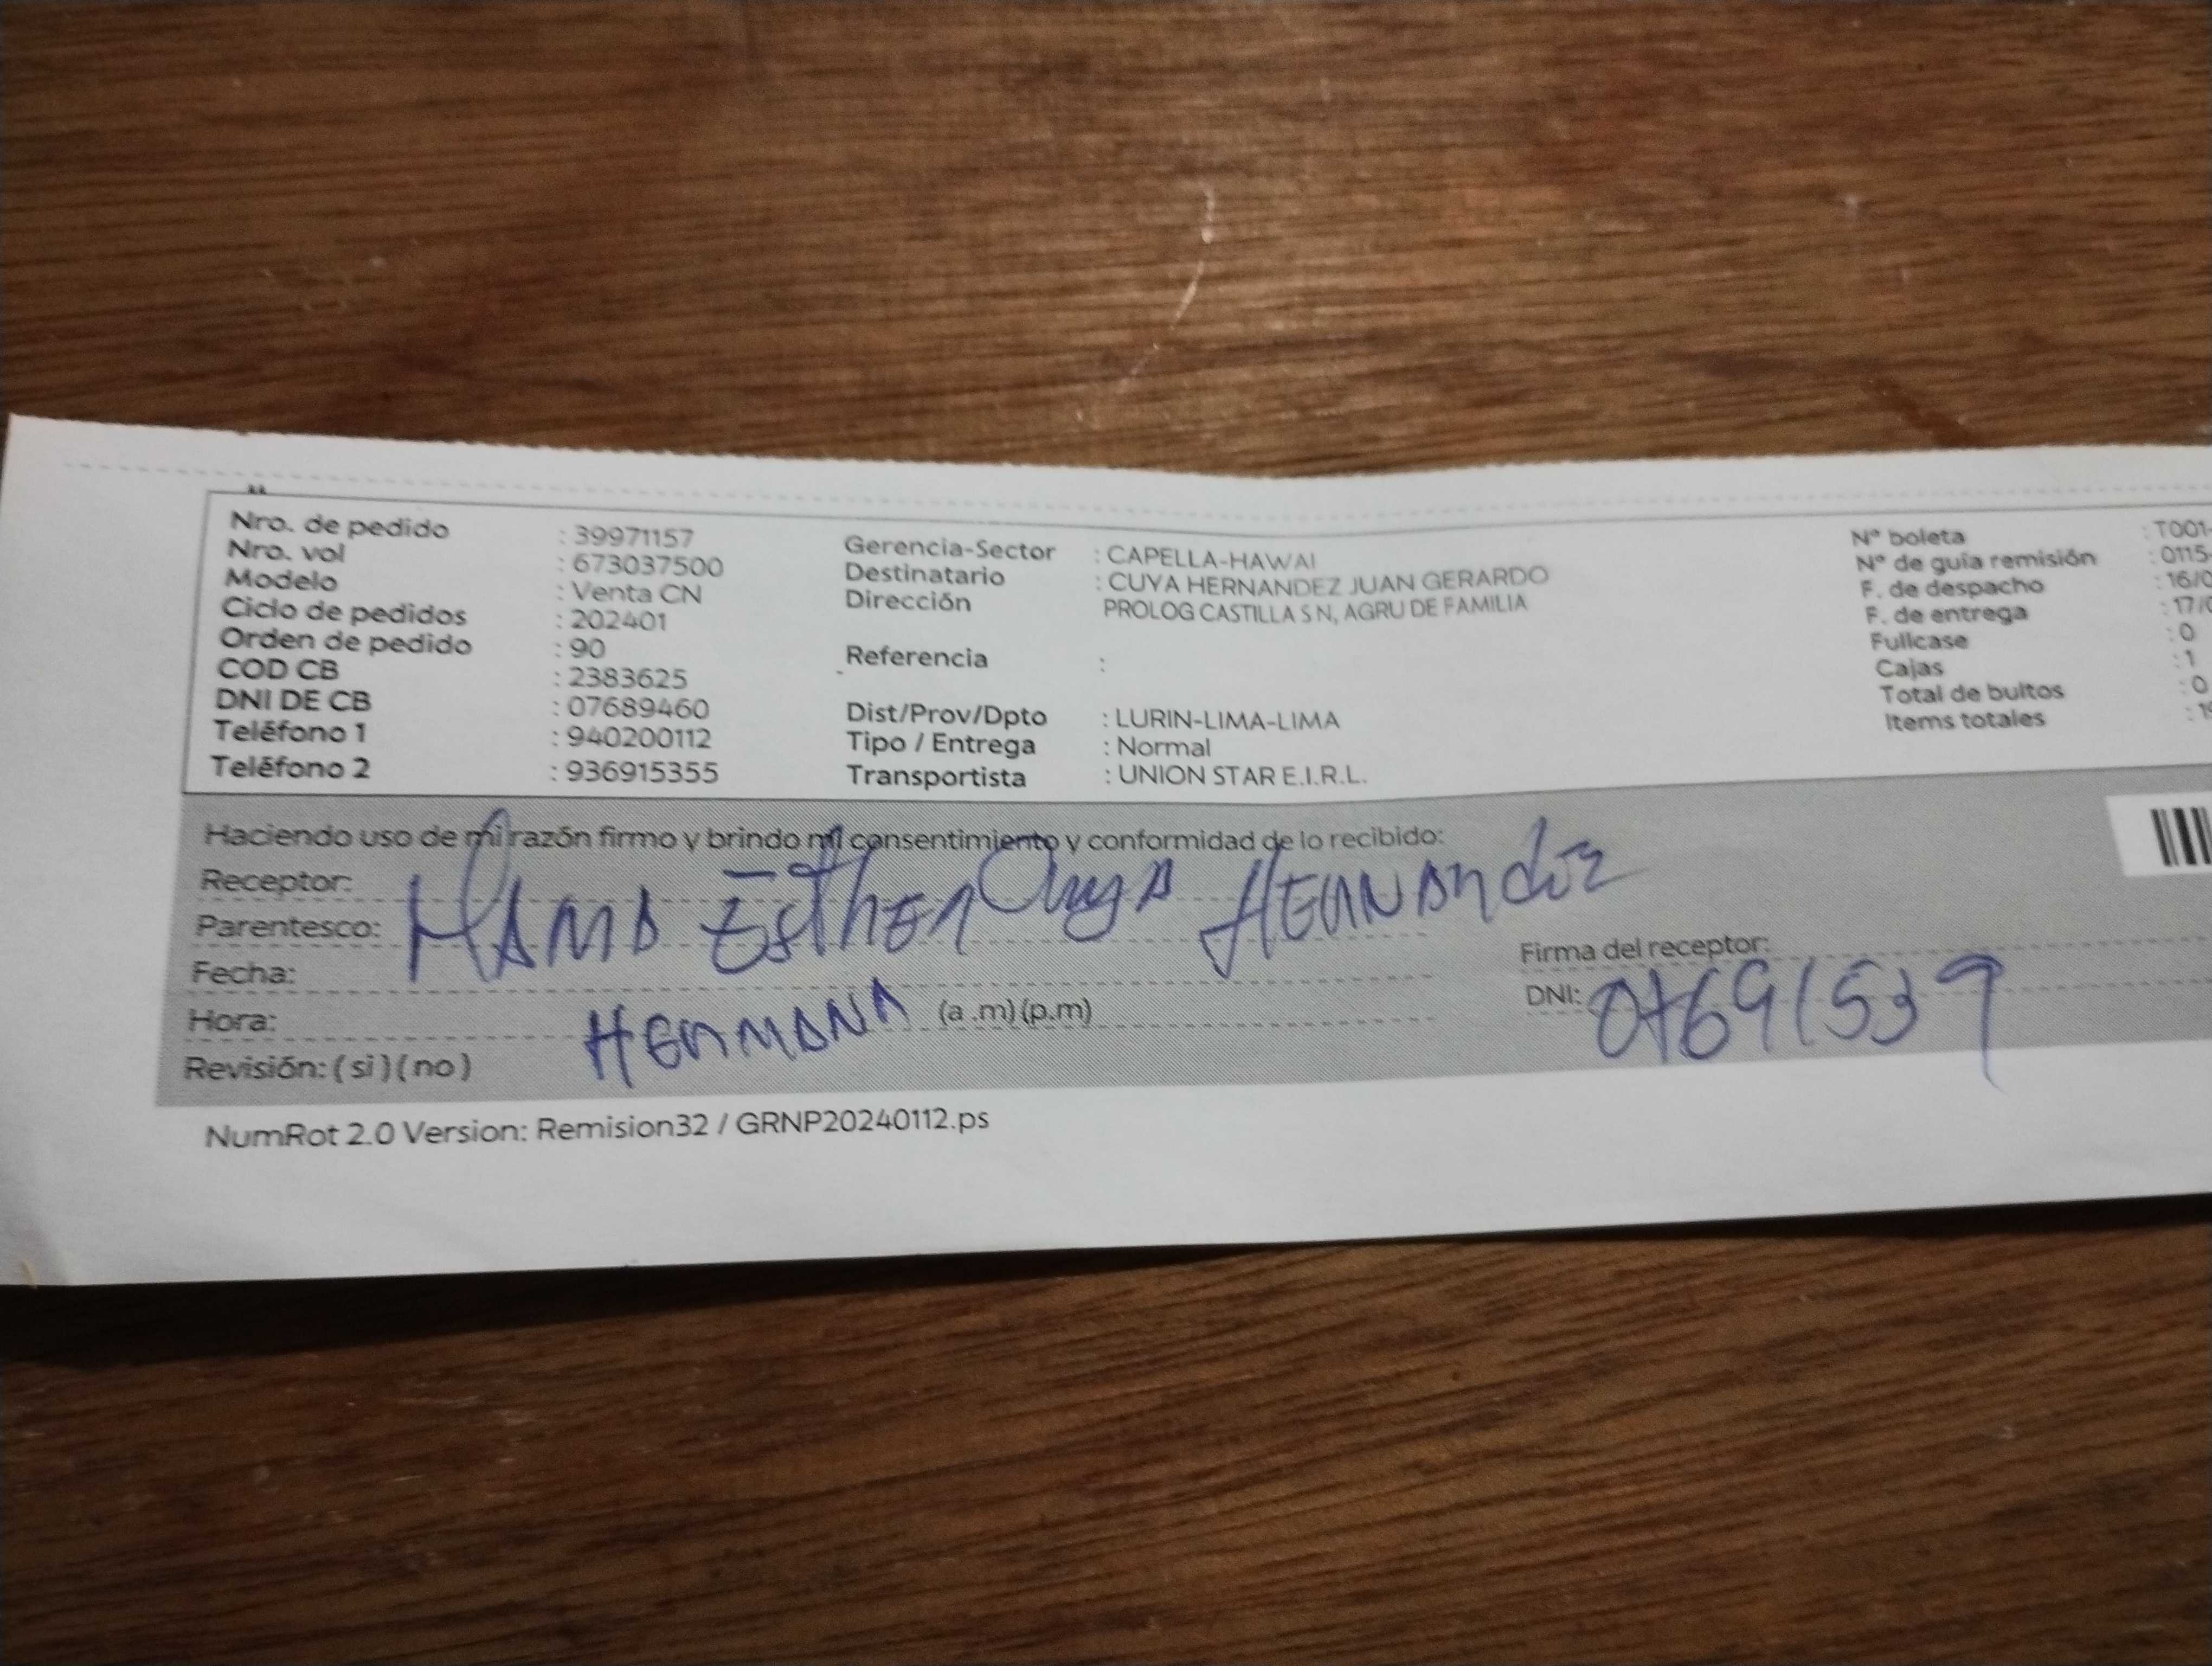 Nro. de pedido : 39971157
Nro. vol : 673037500
Modelo : Venta CN
Ciclo de pedidos : 202401
Orden de pedido : 90
COD CB : 2383625
DNI DE CB : 07689460
Teléfono 1 : 940200112
Teléfono 2 : 936915355
Gerencia-Sector : CAPELLA-HAWAI
Destinatario : CUYA HERNANDEZ JUAN GERARDO
Dirección PROLOG CASTILLA S N, AGRU DE FAMILIA
Referencia :
Dist/Prov/Dpto : LURIN-LIMA-LIMA
Tipo / Entrega : Normal
Transportista : UNION STAR E.I.R.L.
N° boleta : T001-
N° de guía remisión : 0115-
F. de despacho : 16/0
F. de entrega : 17/0
Fullcase : 0
Cajas : 1
Total de bultos : 0
Items totales
Haciendo uso de mi razón firmo y brindo mi consentimiento y conformidad de lo recibido:
Receptor:
Esther Cuya HERNANdez
Parentesco:
Fecha:
Firma del receptor:
Hora: HERMANA (a .m)(p.m)
DNI: 07691539
Revisión: ( si ) ( no )
NumRot 2.0 Version: Remision32 / GRNP20240112.ps